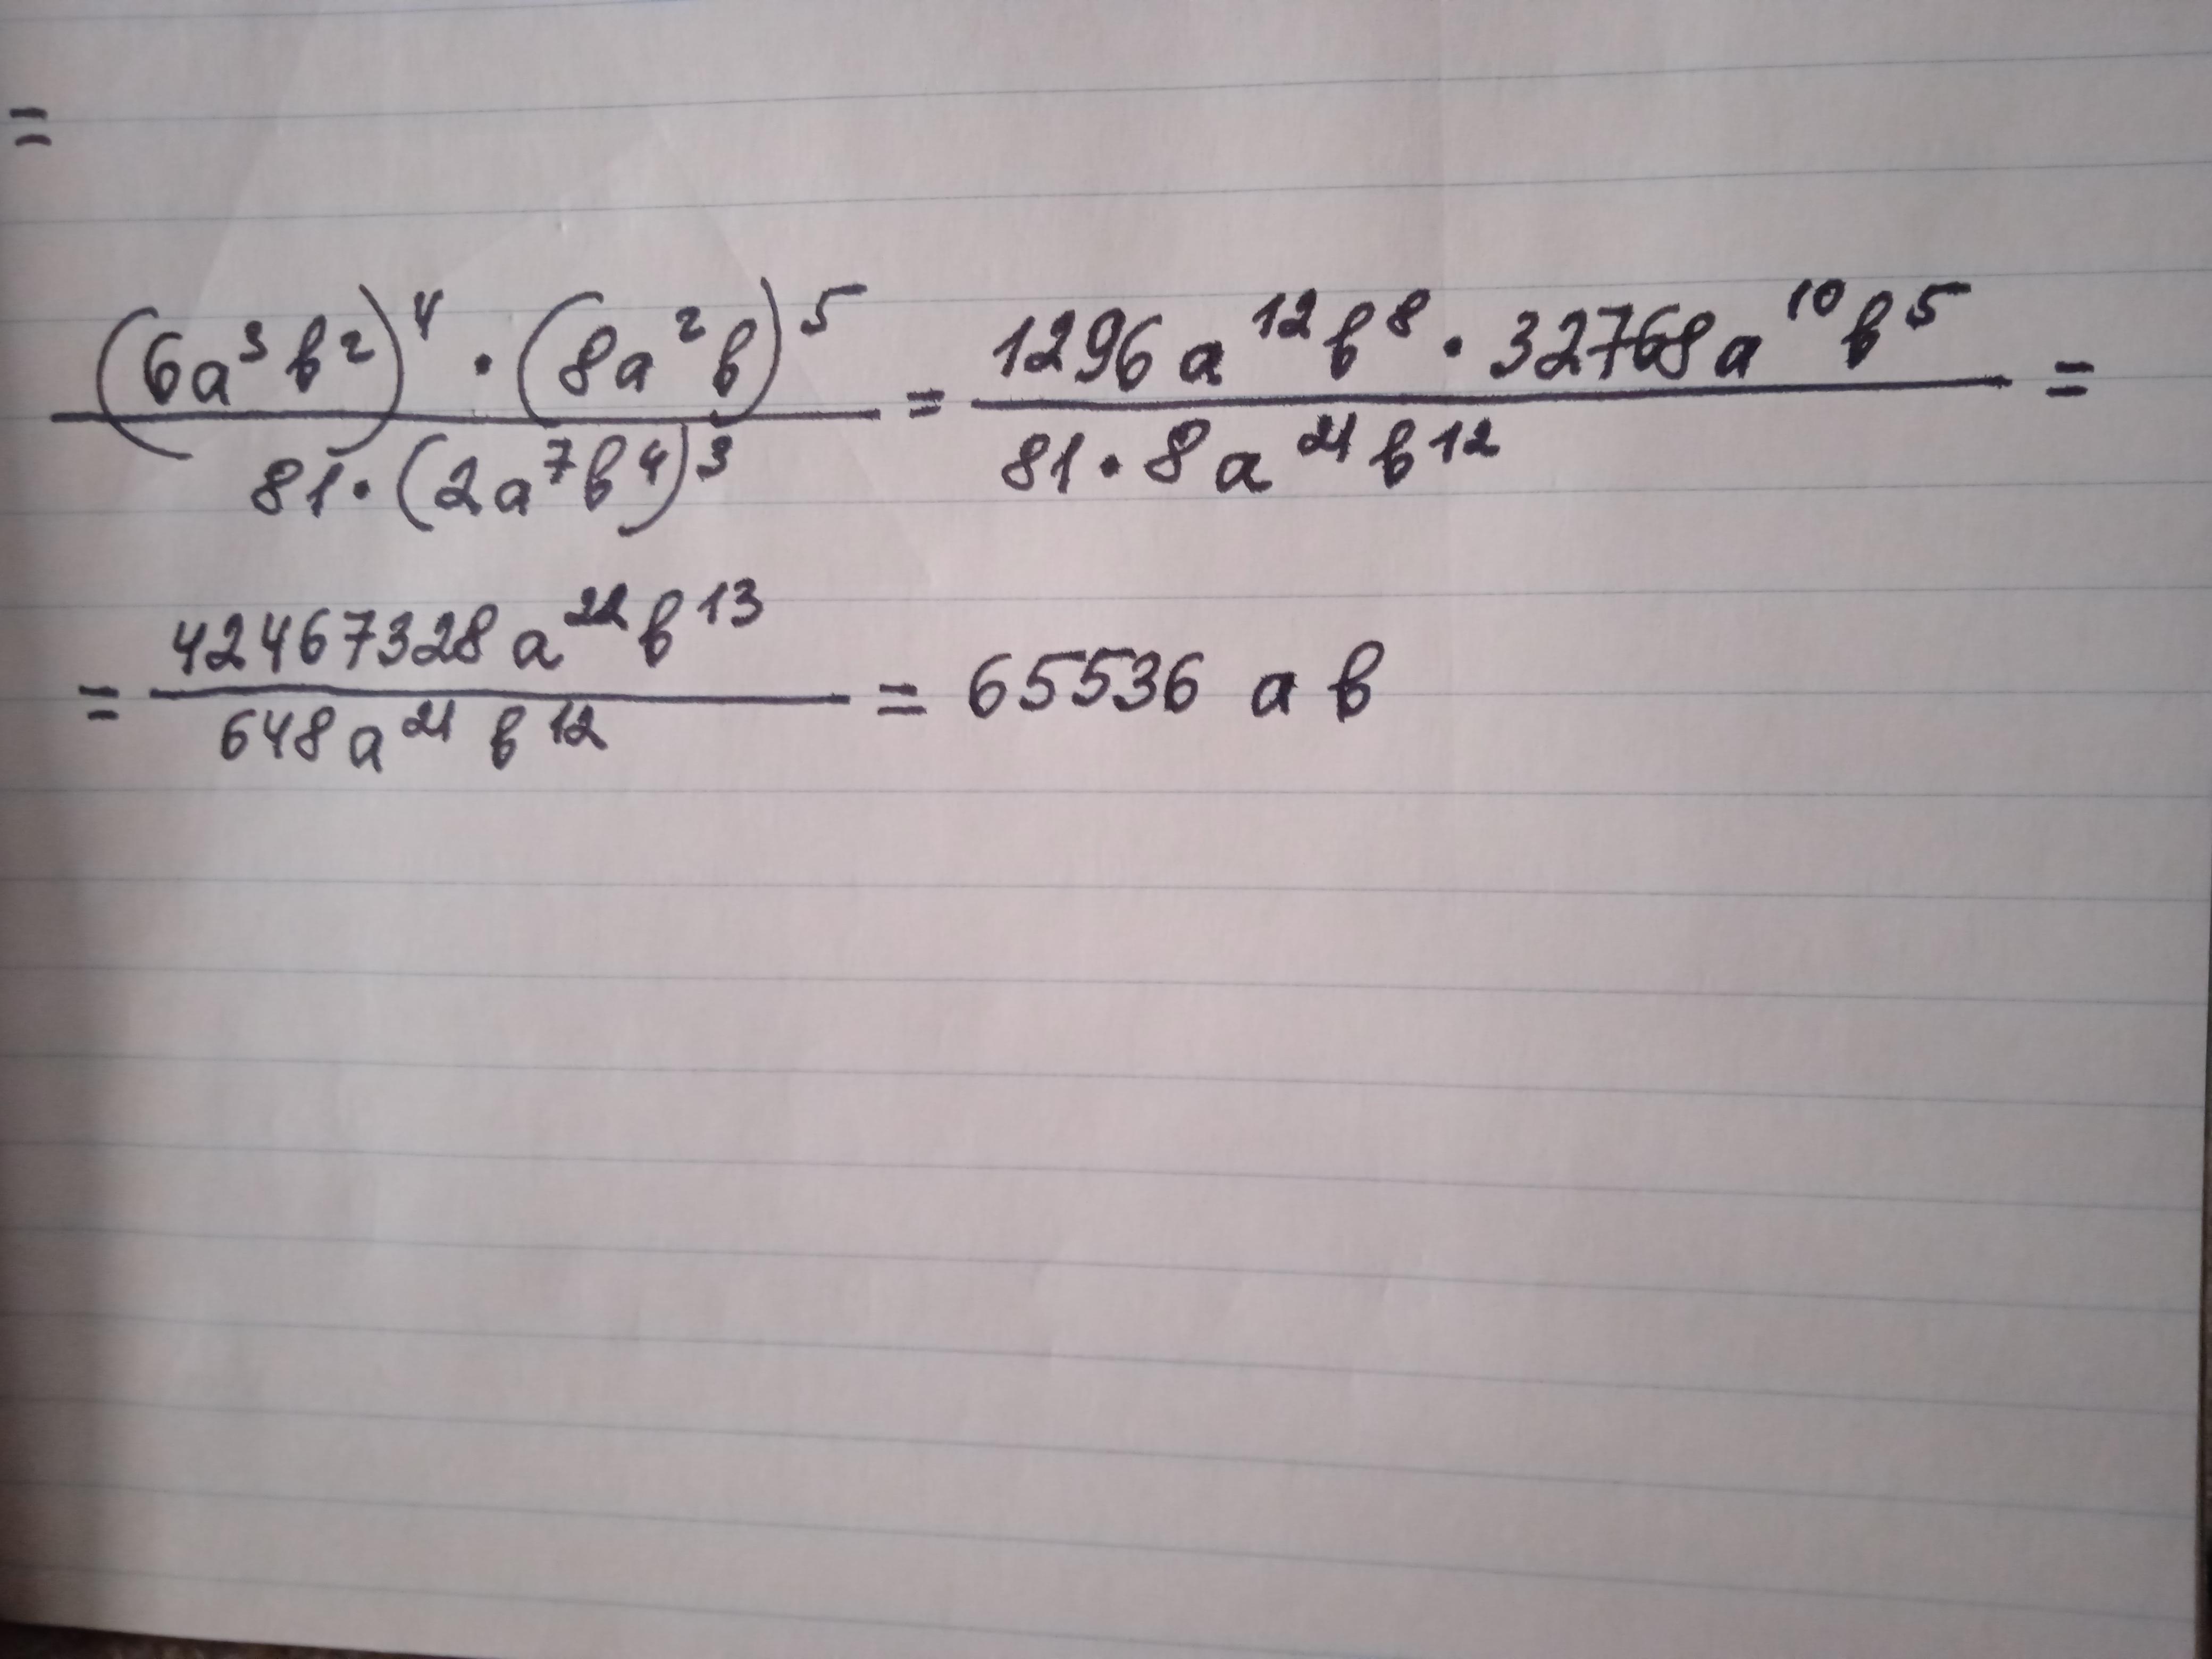 =
(6a³b²)⁴ · (8a²b)⁵ / 81 · (2a⁷b⁴)³ = 1296a¹²b⁸ · 32768a¹⁰b⁵ / 81 · 8a²¹b¹² =
= 42467328a²²b¹³ / 648a²¹b¹² = 65536 ab